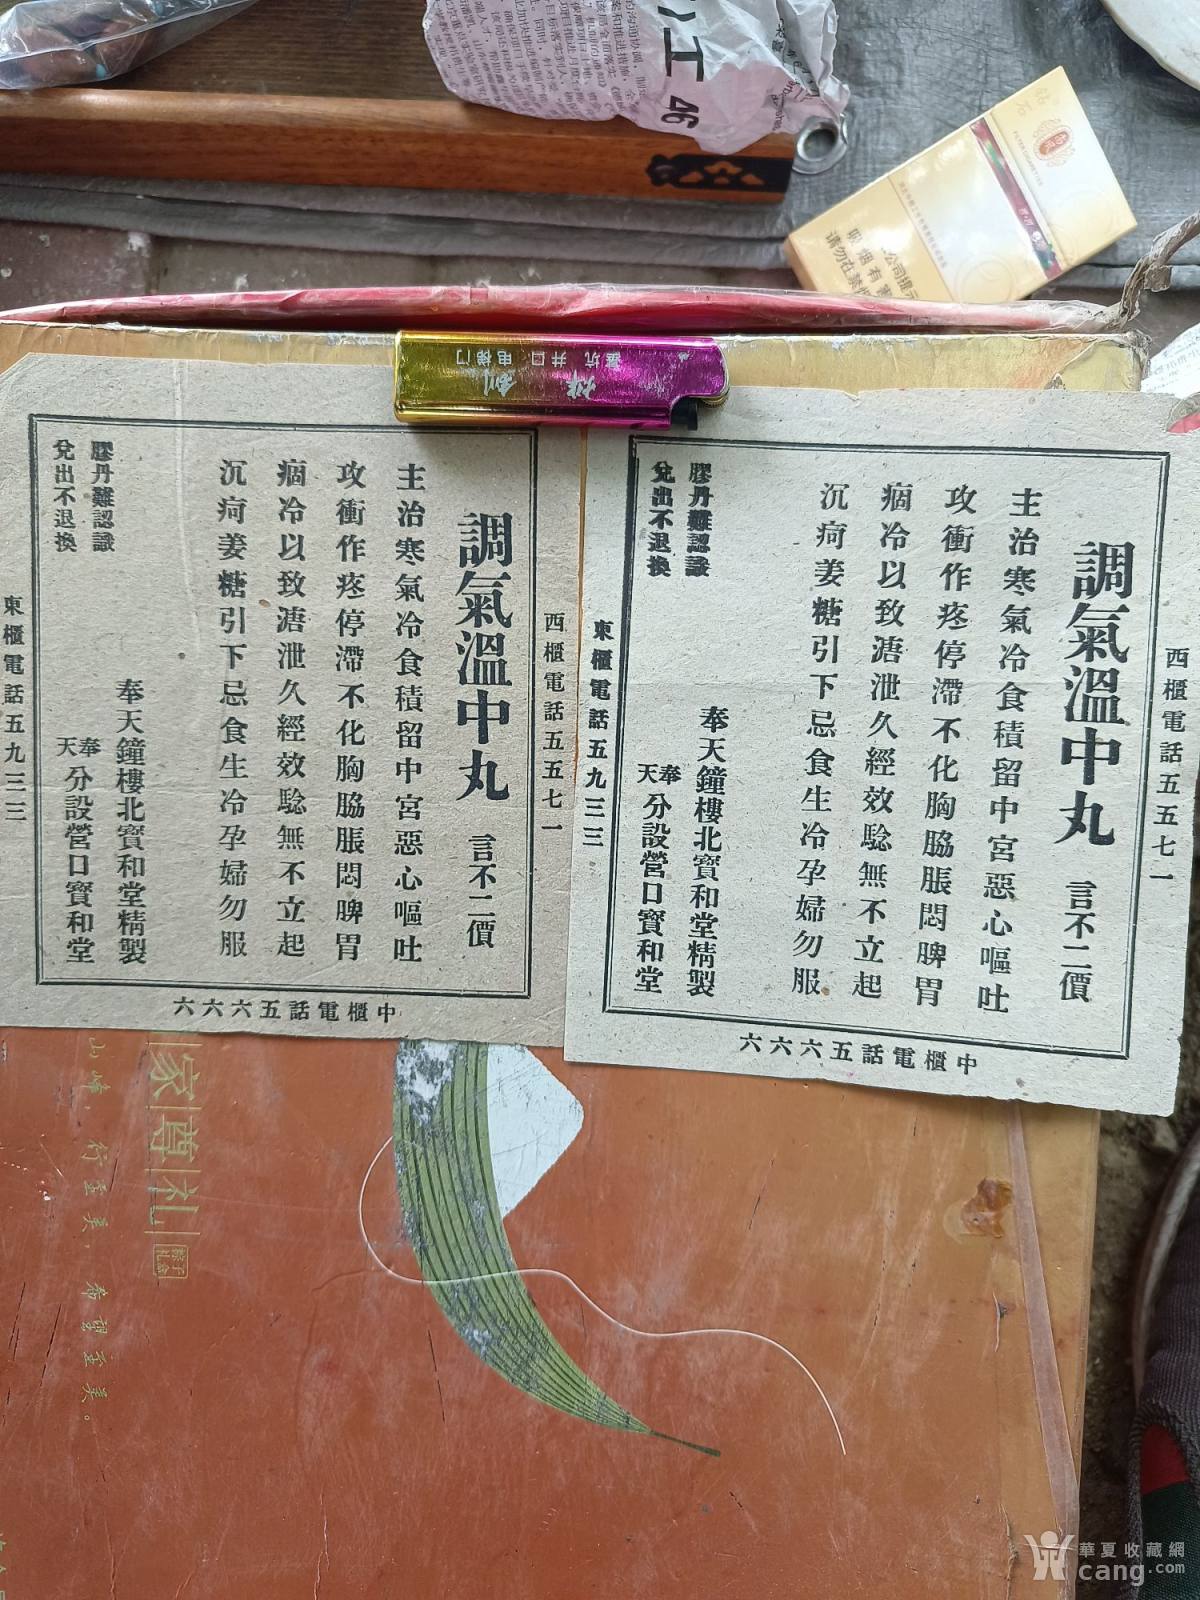 西櫃電話五五七一
調氣溫中丸 言不二價
主治寒氣冷食積留中宮惡心嘔吐
攻衝作疼停滯不化胸脇脹悶脾胃
痼冷以致溏泄久經效騐無不立起
沉疴姜糖引下忌食生冷孕婦勿服
膠丹難認識
兌出不退換
奉天鐘樓北寳和堂精製
奉天分設營口寳和堂
東櫃電話五九三三
中櫃電話五六六六
西櫃電話五五七一
調氣溫中丸 言不二價
主治寒氣冷食積留中宮惡心嘔吐
攻衝作疼停滯不化胸脇脹悶脾胃
痼冷以致溏泄久經效騐無不立起
沉疴姜糖引下忌食生冷孕婦勿服
膠丹難認識
兌出不退換
奉天鐘樓北寳和堂精製
奉天分設營口寳和堂
東櫃電話五九三三
中櫃電話五六六六
井口 电梯门
家尊礼
钻石
请勿在禁
華夏收藏網
cang.com